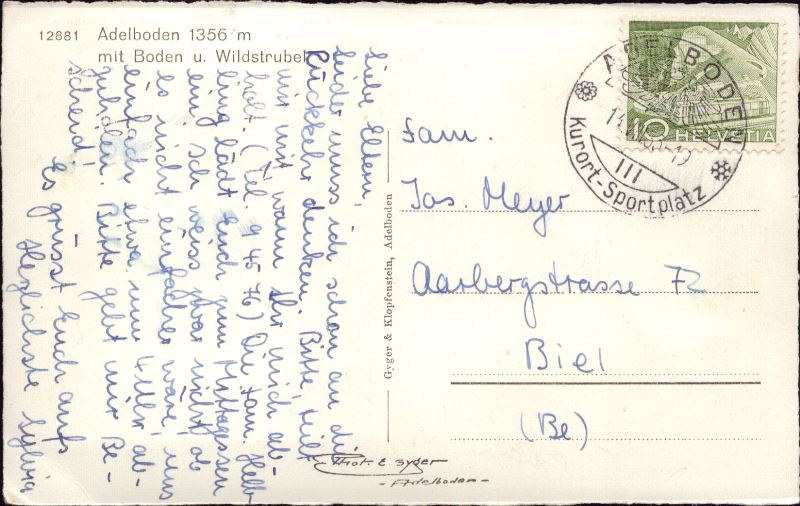 12881 Adelboden 1356 m
mit Boden u. Wildstrubel
Liebe Eltern,
leider muss ich schon an die
Rückkehr denken. Bitte, teilt
mir mit wann Ihr mich ab-
holt. (Tel. 9 45 76) Die Fam. Helb-
ling lädt Euch zum Mittagessen
ein, ich weiss zwar nicht ob
es nicht einfacher wäre, uns
einfach etwa um 4 Uhr ab-
zuholen. Bitte gebt mir Be-
scheid!
Es grüsst Euch aufs
Herzlichste Sylvia
Gyger & Klopfenstein, Adelboden
Phot. E. Gyger
- Adelboden -
ADELBODEN
Kurort-Sportplatz
III
10 HELVETIA
Fam.
Jos. Meyer
Aarbergstrasse 72
Biel
(Be)